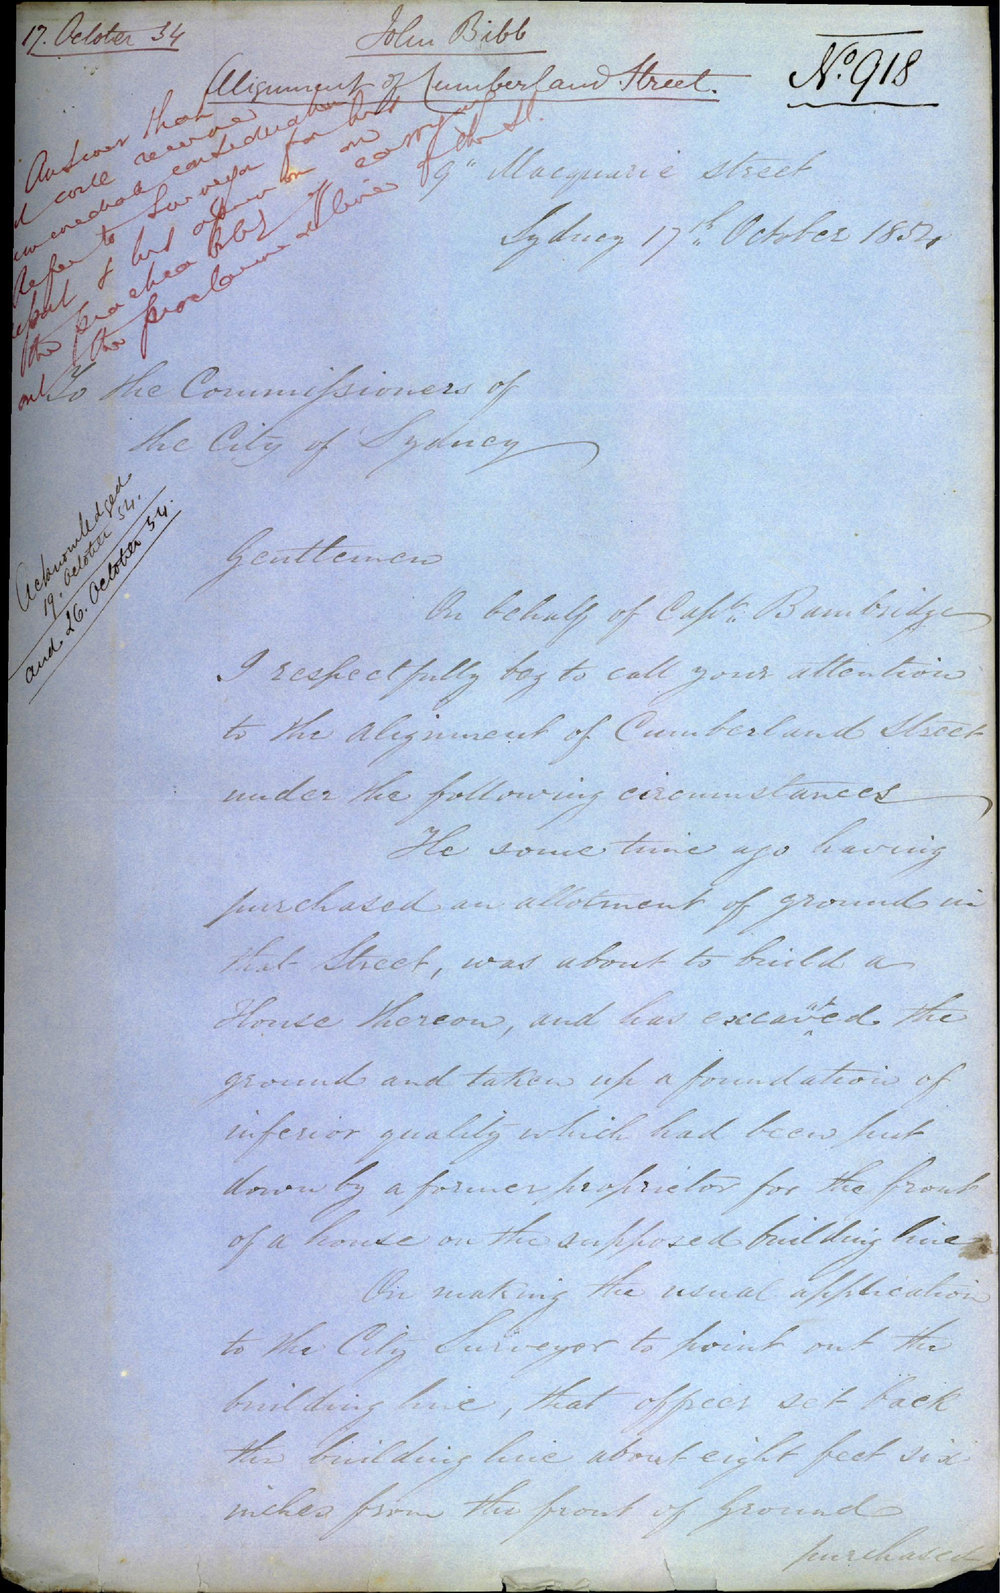 17. October 54
John Bibb
Alignment of Cumberland Street.
No. 918
Answer that
it will receive
immediate consideration
Refer to Surveyor for his
report & his opinion on
the practicability of carrying
out the proclaimed line of the St.
9 Macquarie Street
Sydney 17th October 1854
To the Commissioners of
the City of Sydney
Acknowledged
19. October 54.
and 26. October 54.
Gentlemen
On behalf of Capt. Bambridge
I respectfully beg to call your attention
to the alignment of Cumberland Street
under the following circumstances
He some time ago having
purchased an allotment of ground in
that Street, was about to build a
House thereon, and has excavated the
ground and taken up a foundation of
inferior quality which had been put
down by a former proprietor for the front
of a house on the supposed building line
On making the usual application
to the City Surveyor to point out the
building line, that officer set back
the building line about eight feet six
inches from the front of Ground
purchased